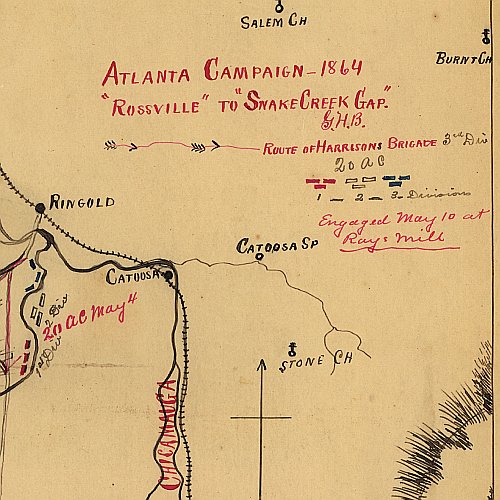 SALEM CH
BURNT CH
ATLANTA CAMPAIGN - 1864
"ROSSVILLE" TO "SNAKE CREEK GAP."
G.H.B.
ROUTE OF HARRISONS BRIGADE 3rd Div
20 AC
1 - 2 - 3 - Divisions
Engaged May 10 at
Rays Mill
RINGOLD
CATOOSA SP
CATOOSA
20 AC May 4
2 Div
1st Div
STONE CH
CHICAMAUGA